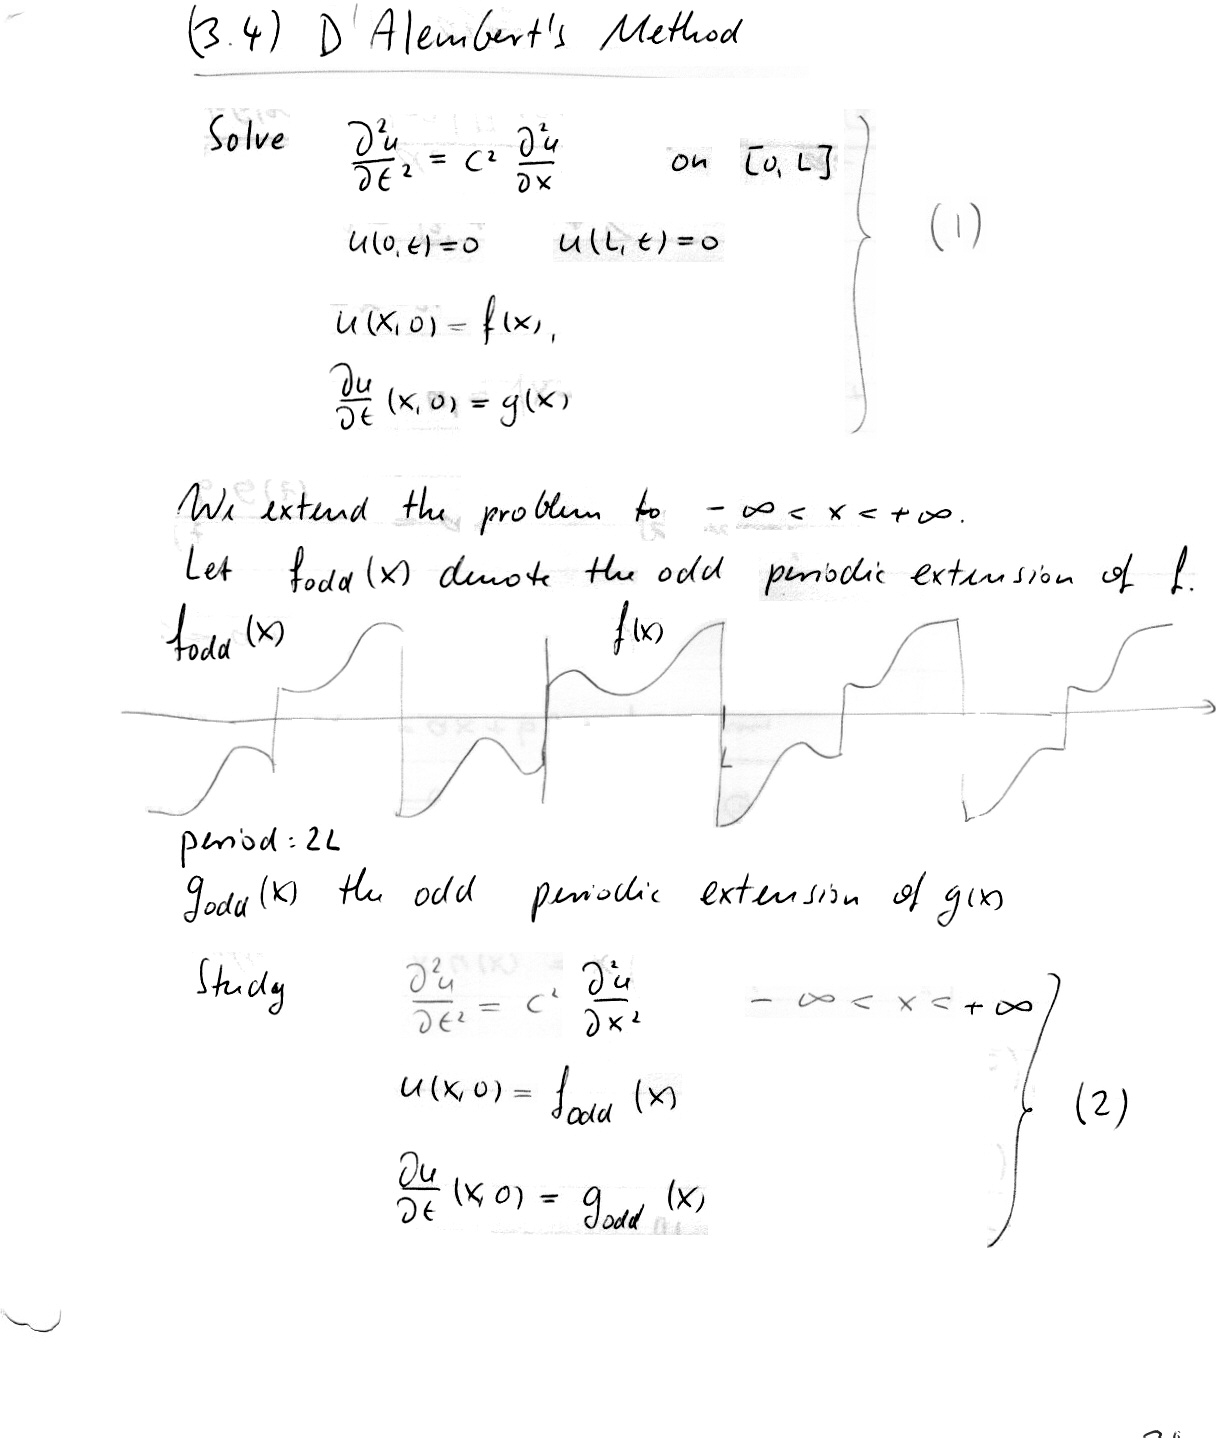 (3.4) D'Alembert's Method
Solve ∂²u/∂t² = c² ∂²u/∂x on [0, L]
u(0,t)=0 u(L,t)=0 (1)
u(x,0) = f(x),
∂u/∂t (x,0) = g(x)
We extend the problem to -∞ < x < +∞.
Let fodd(x) denote the odd periodic extension of f.
fodd(x) f(x)
L
period: 2L
godd(x) the odd periodic extension of g(x)
Study ∂²u/∂t² = c² ∂²u/∂x² -∞ < x < +∞
u(x,0) = fodd(x) (2)
∂u/∂t (x,0) = godd(x)